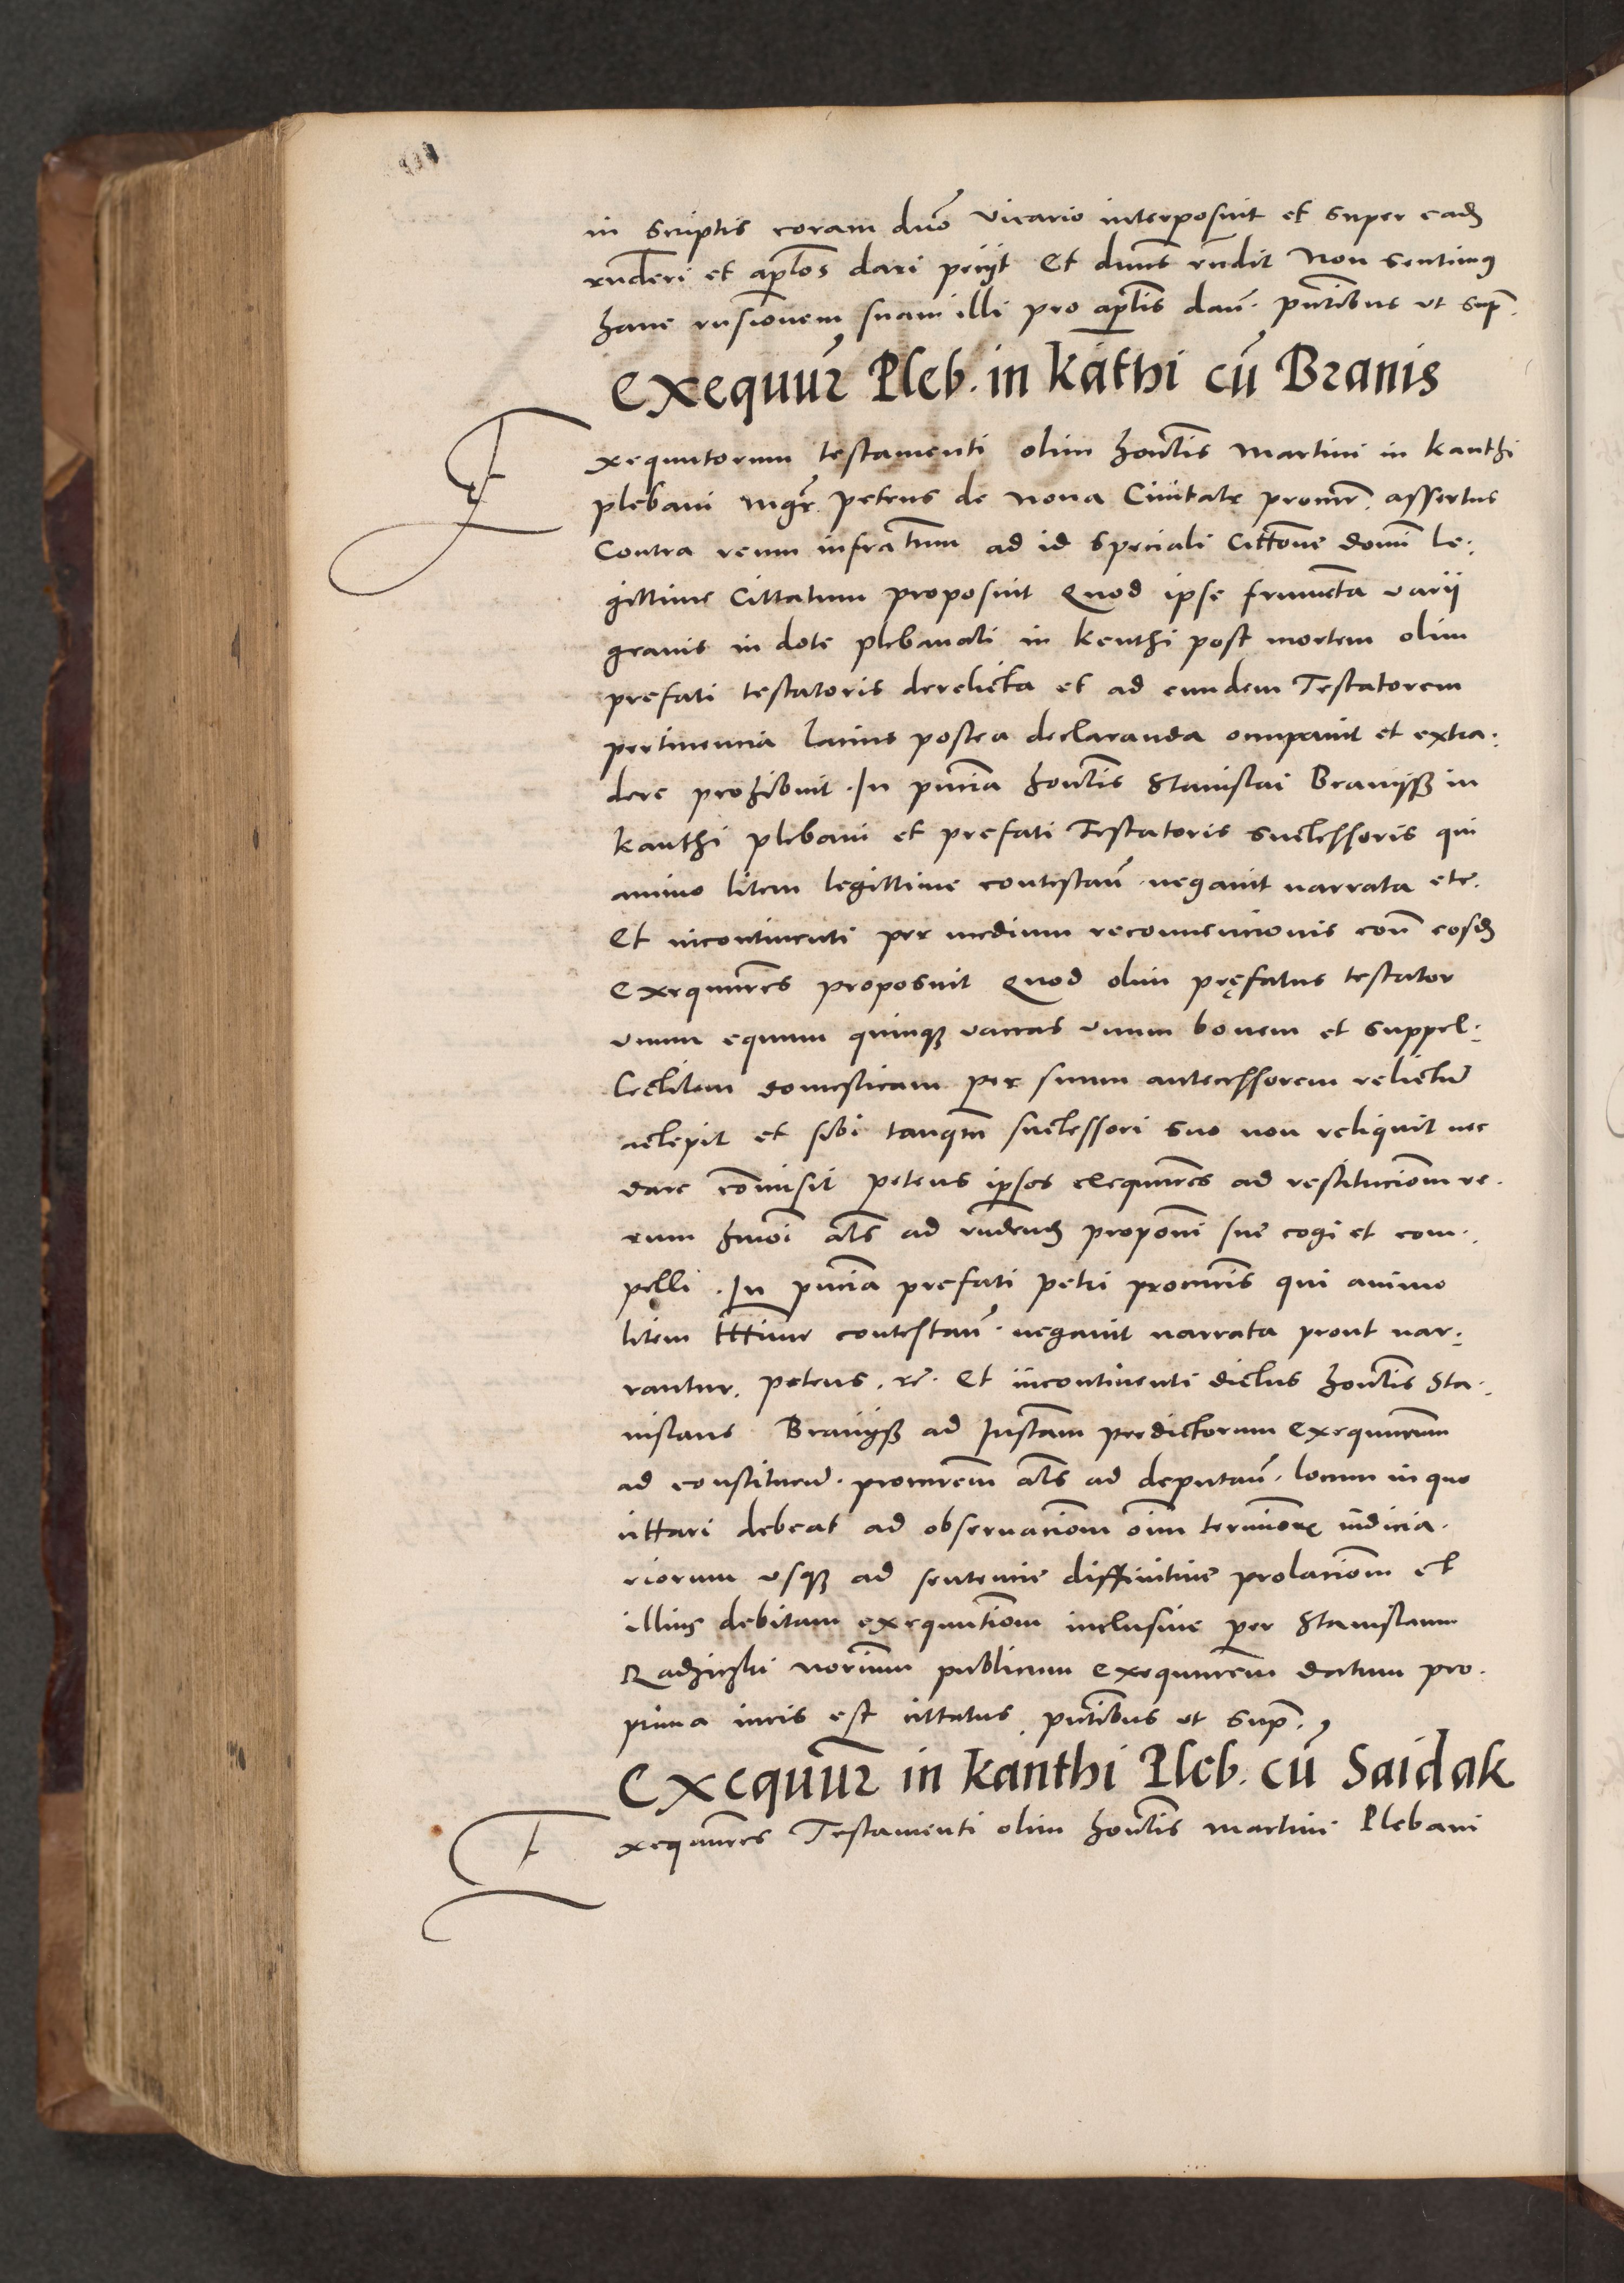 in scriptis coram dno vicario interposuit et super eadẽ
rnderi et aplos dari peciit Et dnus rndit Non sentimus
hanc rnsionem suam illi pro aplis dan̄. pntibus ut sup̄.
Exequũr Pleb. in kāthi cū Branis
Exequutorum testamenti olim honlis Martini in kanthi
plebani Mgr̄. Petrus de Noua Ciuitate procur̄. assertus
Contra reum infratum ad id speciali Cittone domi le-
gittime Cittatum proposuit Quod ipse frumenta varii
granis in dote plebanali in kenthi post mortem olim
prefati testatoris derelicta et ad eundem Testatorem
pertinencia lacius postea declaranda occupauit et extra-
dere prohibuit. In pncia honlis Stanislai Branijsz in
kanthi plebani et prefati Testatoris successoris qui
animo litem legittime contestan̄. negauit narrata etc.
Et incontinenti per medium reconuencionis con̄ eosdẽ
Exequutres proposuit Quod olim pręfatus testator
vnum equum quinqz vaccas vnum bouem et suppel-
lectilem domesticam per suum antecessorem relictū
accepit et sibi tanqm̄ successori suo non reliquit nec
dare comisit petens ipsos exequutres ad restitucionem re-
rum hmoi als ad rndendū proponi sue cogi et com-
pelli. In pncia prefati Petri procuris qui animo
litem ltttime contestan̄. negauit narrata prout nar-
rantur. petens. rē. Et incontinenti dictus honlis Sta-
nislaus Branijsz ad Instam predictorum Exequutrum
ad constituen̄. procurem als ad deputan̄. locum in quo
cittari debeat ad obseruacionem oim terminorꝝ iudicia-
riorum vsqz ad sentencie diffinitiue prolacionem et
illius debitam exequutionem inclusiue per Stanislaum
Radziczki norium publicum Exequutrem datum pro
prima iuris est cittatus. pntibus ut sup̄.
Exequũr in kanthi Pleb. cū Saidak
Exequutres Testamenti olim honlis Martini Plebani